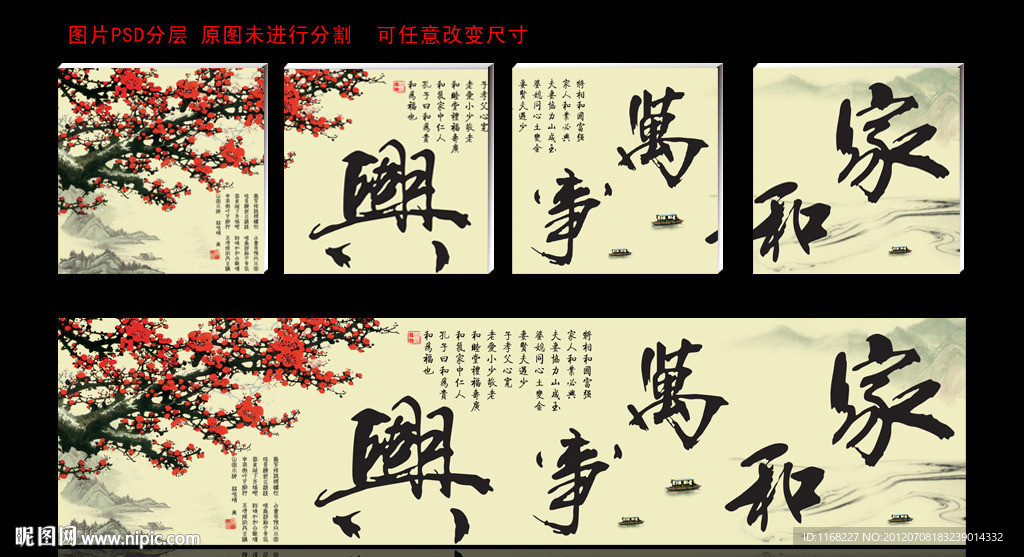 图片PSD分层 原图未进行分割 可任意改变尺寸
家
和
萬
事
興
將相和國富强
家人和業必興
夫妻協力山成玉
婆媳同心土變金
妻賢夫遇少
子孝父心寬
老愛小少敬老
和睦堂禮福壽廣
和氣家中仁人
孔子曰和爲貴
和爲福也
家
和
萬
事
興
將相和國富强
家人和業必興
夫妻協力山成玉
婆媳同心土變金
妻賢夫遇少
子孝父心寬
老愛小少敬老
和睦堂禮福壽廣
和氣家中仁人
孔子曰和爲貴
和爲福也
昵图网 www.nipic.com
ID:1168227 NO:20120708183239014332